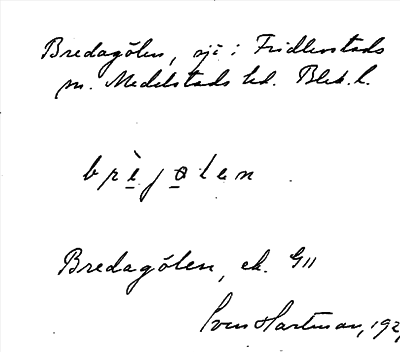 Bredagölen, sjö i Fridlevstads
sn. Medelstads hd. Blek. l.
brè̱jo̱len
Bredagölen, ek. G11
Sven Hartman, 192